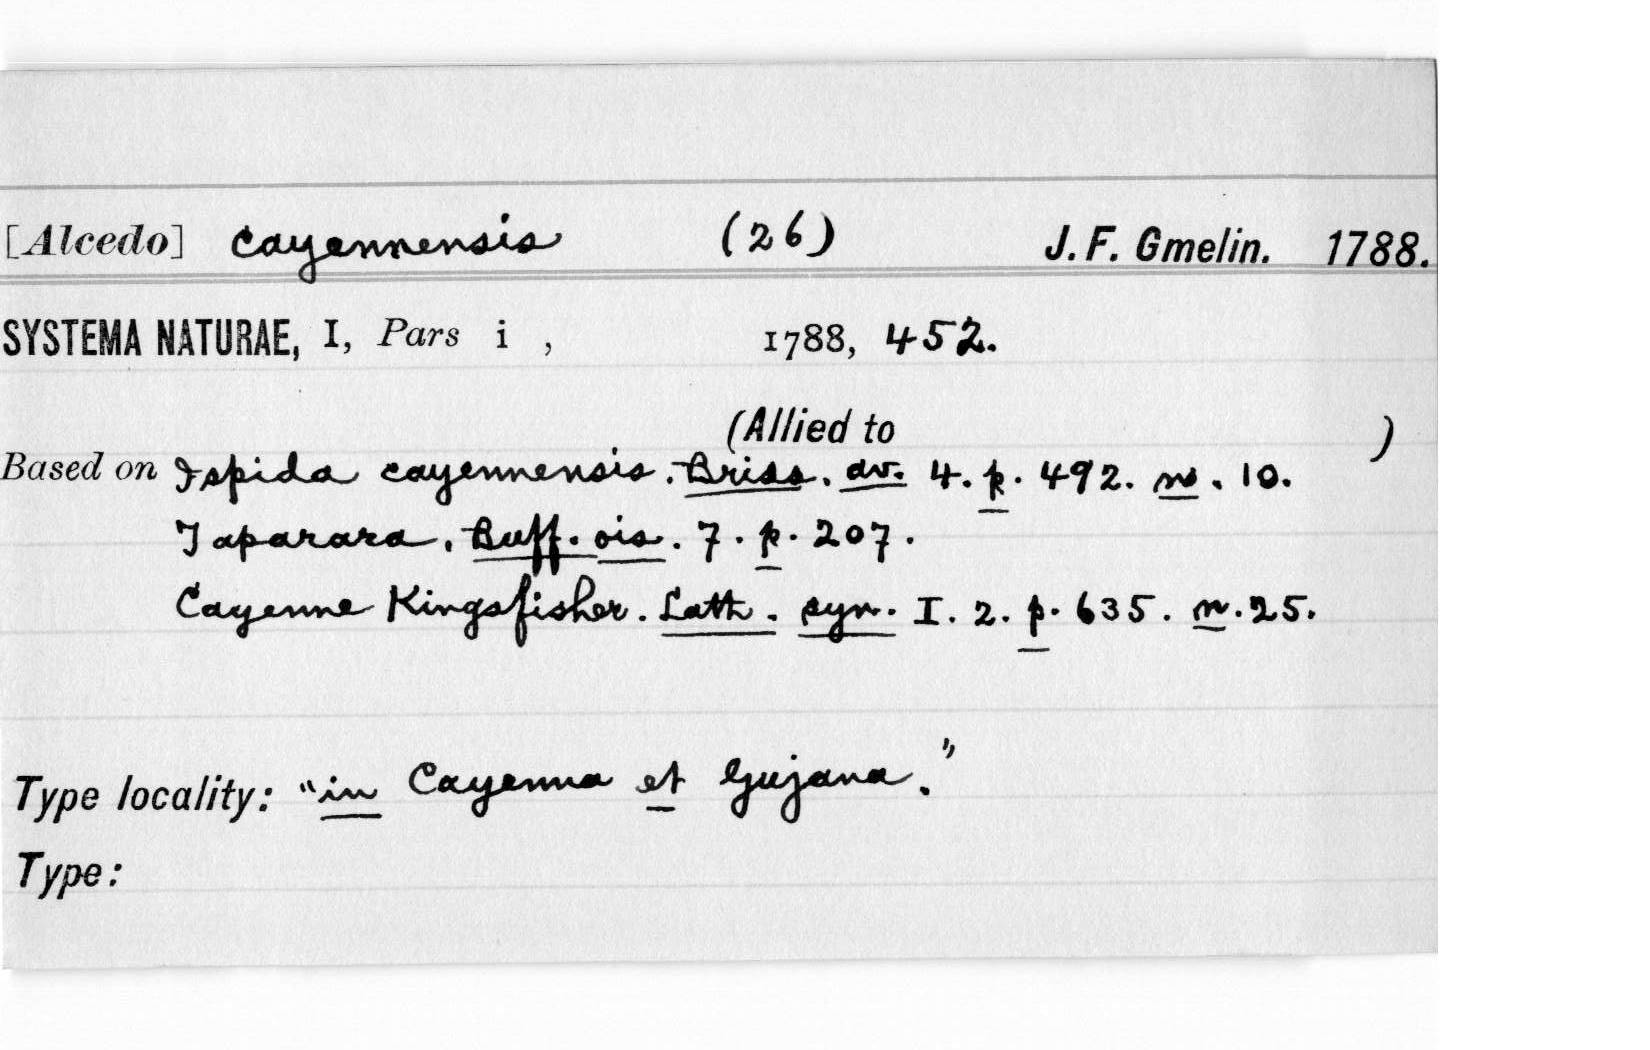 [Alcedo] cayennensis (26) J. F. Gmelin. 1788.
SYSTEMA NATURAE, I, Pars i , 1788, 452.
(Allied to )
Based on Ispida cayennensis. Briss. av. 4. p. 492. n. 10.
Taparara. Buff. ois. 7. p. 207.
Cayenne Kingsfisher. Lath. syn. I. 2. p. 635. n. 25.
Type locality: "in Cayenna et Gujana."
Type: